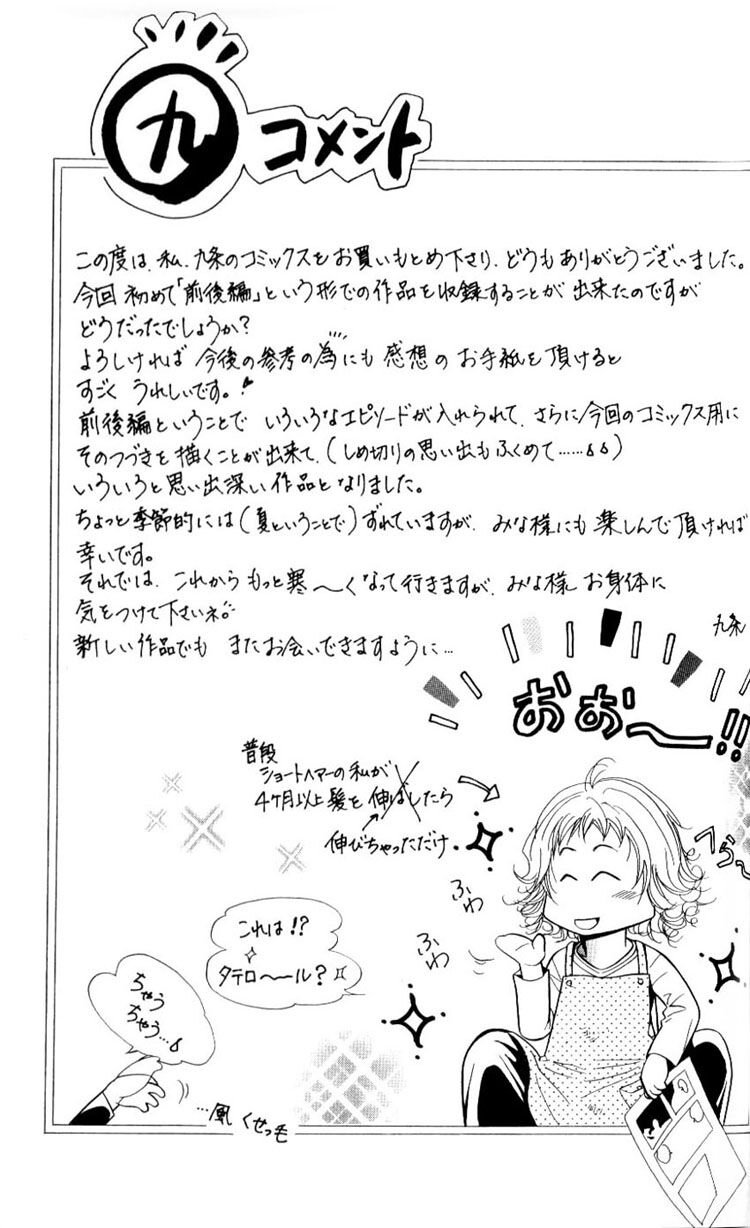 九 コメント
この度は、私、九条のコミックスをお買いもとめ下さり、どうもありがとうございました。
今回 初めて「前後編」という形での作品を収録することが 出来たのですが
どうだったでしょうか?
よろしければ 今後の参考の為にも 感想の お手紙を 頂けると
すごく うれしいです。
前後編ということで いろいろなエピソードが入れられて、さらに今回のコミックス用に
そのつづきを描くことが出来て、(しめ切りの思い出もふくめて……)
いろいろと思い出深い作品となりました。
ちょっと季節的には(夏ということで)ずれていますが、みな様にも楽しんで頂ければ
幸いです。
それでは、これから もっと寒〜くなって行きますが、みな様 お身体に
気をつけて下さいネ。
新しい作品でも またお会いできますように…
九条
おぉ〜!!
普段
ショートヘアーの私が
4ヶ月以上髪を 伸ばしたら
伸びちゃっただけ
ふわ
ふわ
これは!?
タテロ〜〜ル?
ちゃう
ちゃう…
…風 くせっ毛